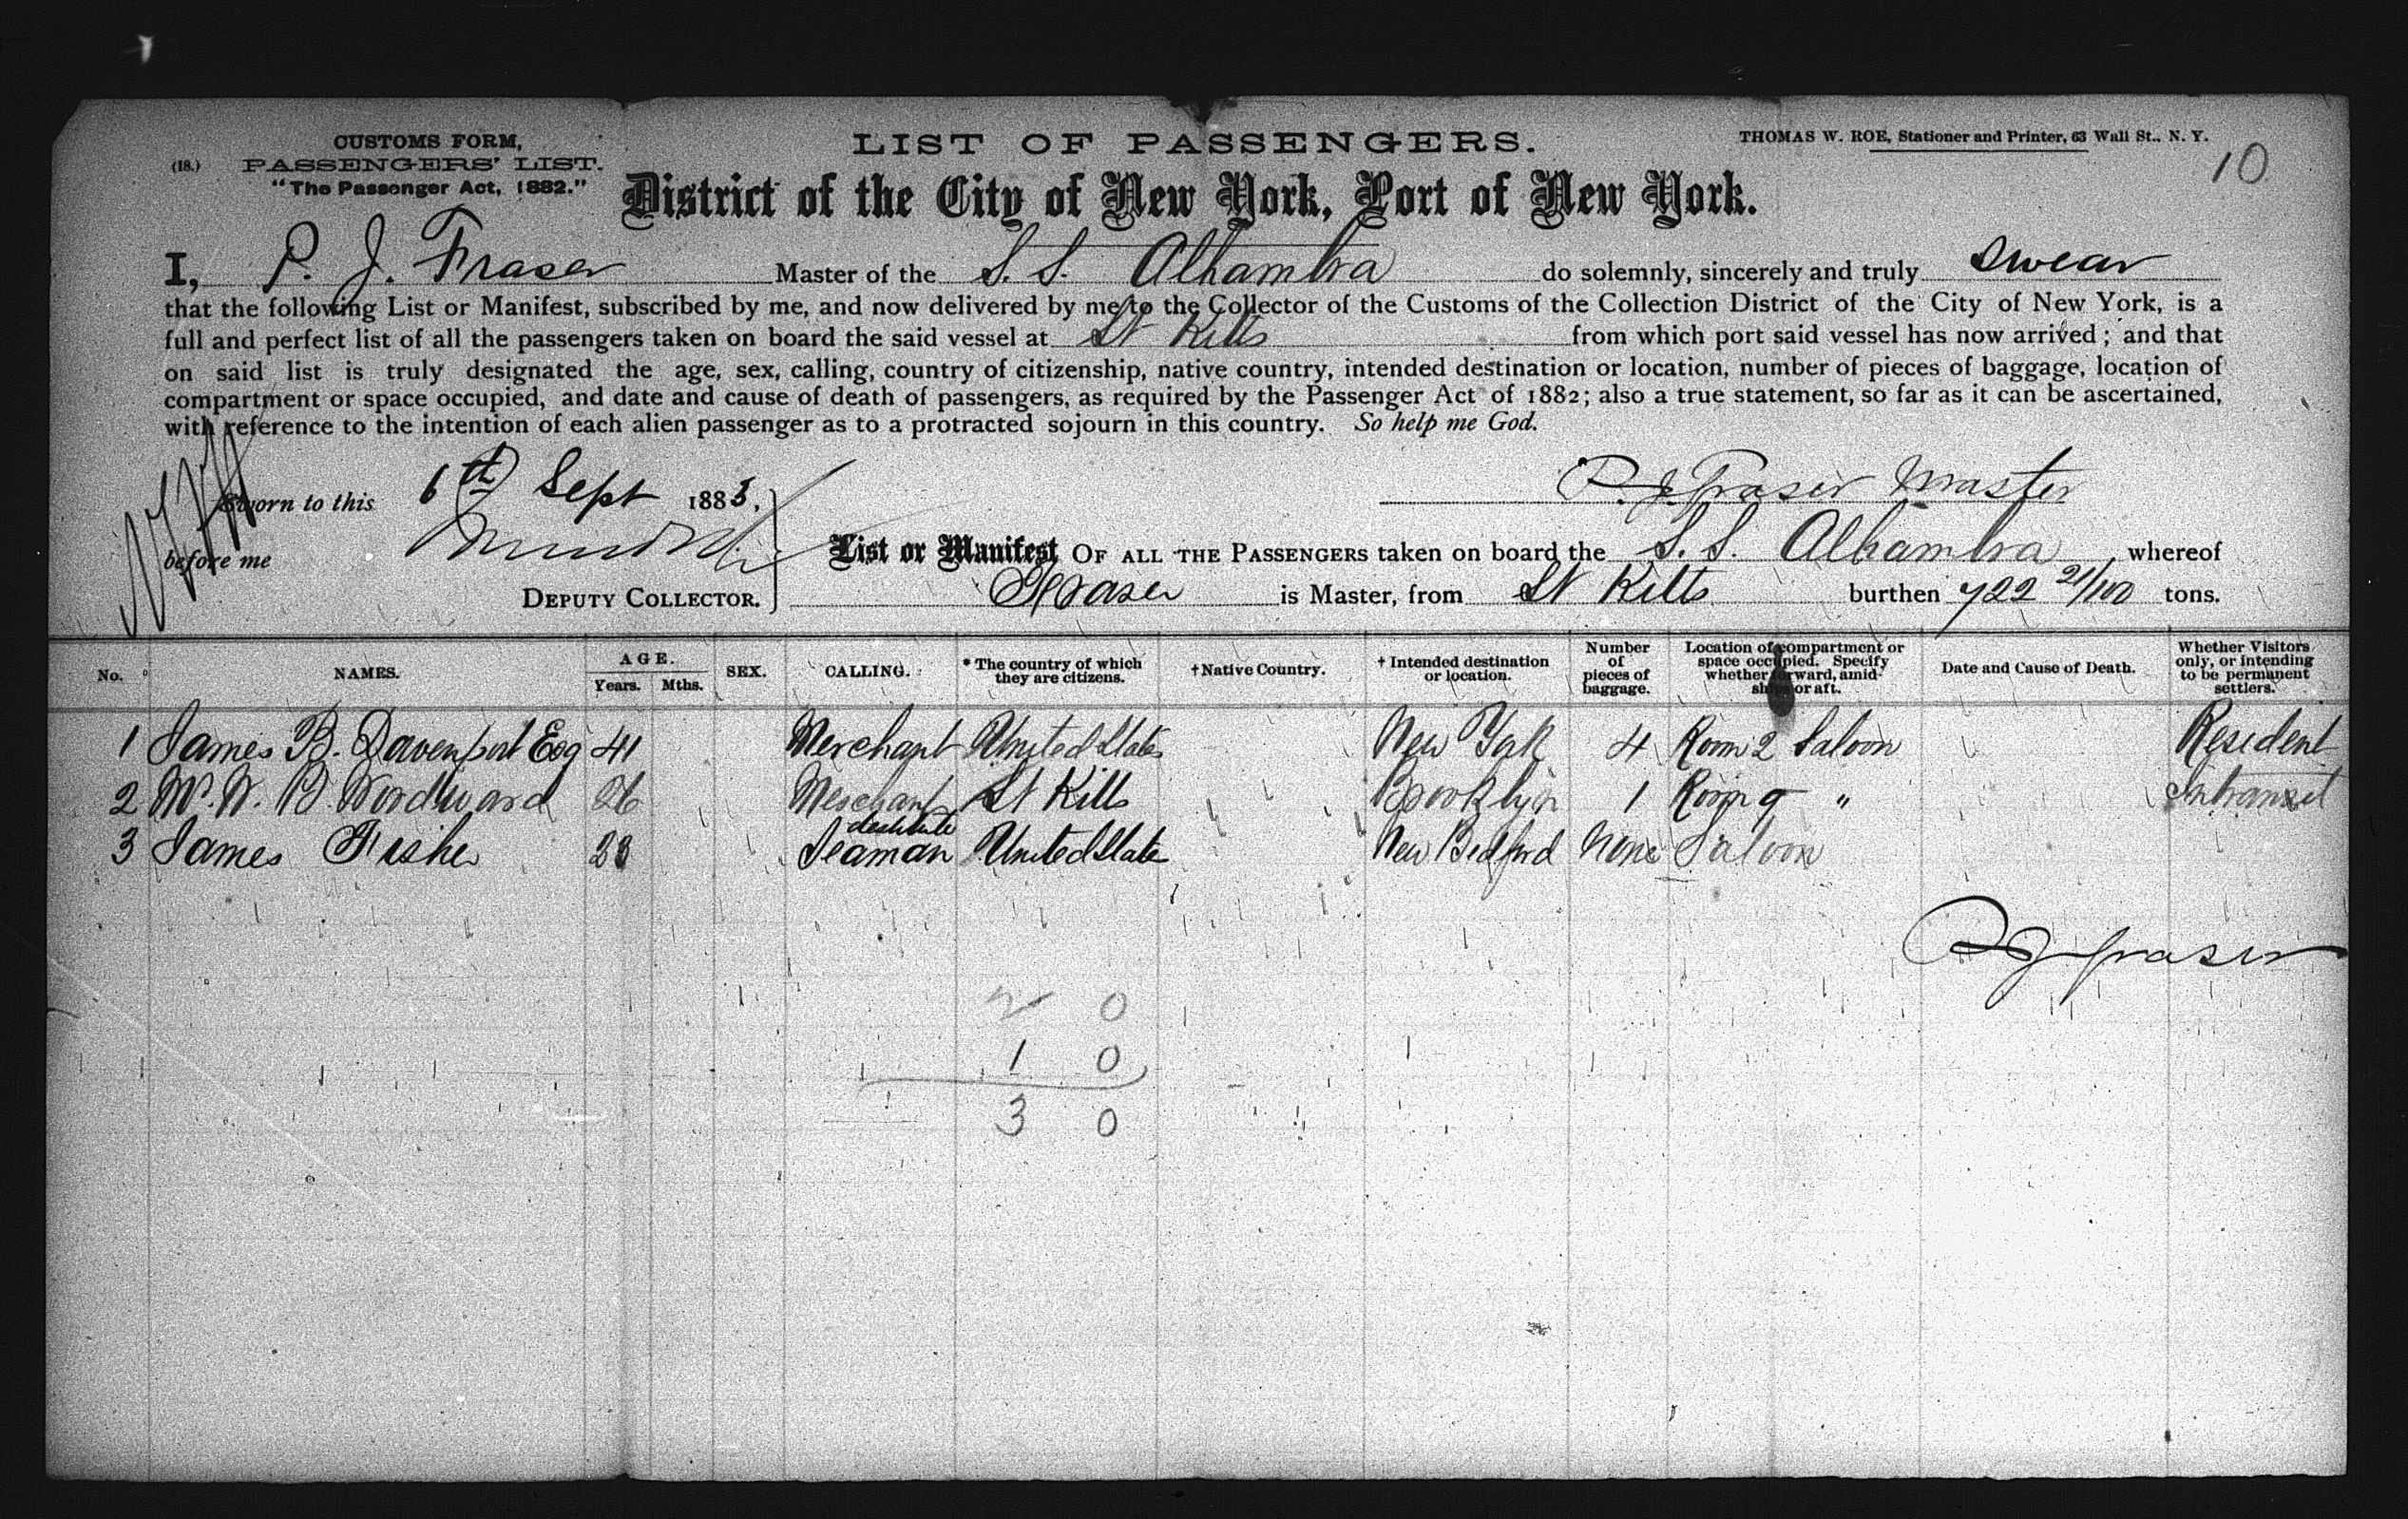 CUSTOMS FORM,
(18.) PASSENGERS' LIST.
"The Passenger Act, 1882."
LIST OF PASSENGERS.
THOMAS W. ROE, Stationer and Printer, 63 Wall St., N. Y.
10
District of the City of New York, Port of New York.
I, P. J. Fraser Master of the S.S. Alhambra do solemnly, sincerely and truly swear
that the following List or Manifest, subscribed by me, and now delivered by me to the Collector of the Customs of the Collection District of the City of New York, is a
full and perfect list of all the passengers taken on board the said vessel at St Kitts from which port said vessel has now arrived; and that
on said list is truly designated the age, sex, calling, country of citizenship, native country, intended destination or location, number of pieces of baggage, location of
compartment or space occupied, and date and cause of death of passengers, as required by the Passenger Act of 1882; also a true statement, so far as it can be ascertained,
with reference to the intention of each alien passenger as to a protracted sojourn in this country. So help me God.
Sworn to this 6th Sept 1883,
P. J. Fraser Master
before me
DEPUTY COLLECTOR.
List or Manifest OF ALL THE PASSENGERS taken on board the S.S. Alhambra whereof
Fraser is Master, from St Kitts burthen 722 21/100 tons.
No. NAMES. AGE. Years. Mths. SEX. CALLING. * The country of which they are citizens. † Native Country. † Intended destination or location. Number of pieces of baggage. Location of compartment or space occupied. Specify whether forward, amidships or aft. Date and Cause of Death. Whether Visitors only, or intending to be permanent settlers.
1 James B. Davenport Esq 41 Merchant United States New York 4 Room 2 Saloon Resident
2 W. B. Woodward 26 Merchant St Kitts Brooklyn 1 Room 9 " Intransit
3 James Fisher 23 destitute Seaman United State New Bedford None Saloon
P J Fraser
2 0
1 0
3 0